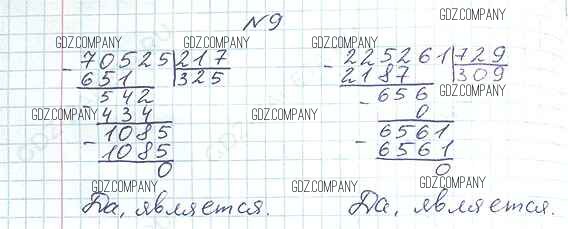 №9
GDZ.COMPANY GDZ.COMPANY GDZ.COMPANY
70525 | 217
- 651 325
542
- 434
1085
- 1085
0
Да, является.
225261 | 729
- 2187 309
656
- 0
6561
- 6561
0
Да, является.
GDZ.COMPANY
GDZ.COMPANY GDZ.COMPANY GDZ.COMPANY
GDZ.COMPANY GDZ.COMPANY